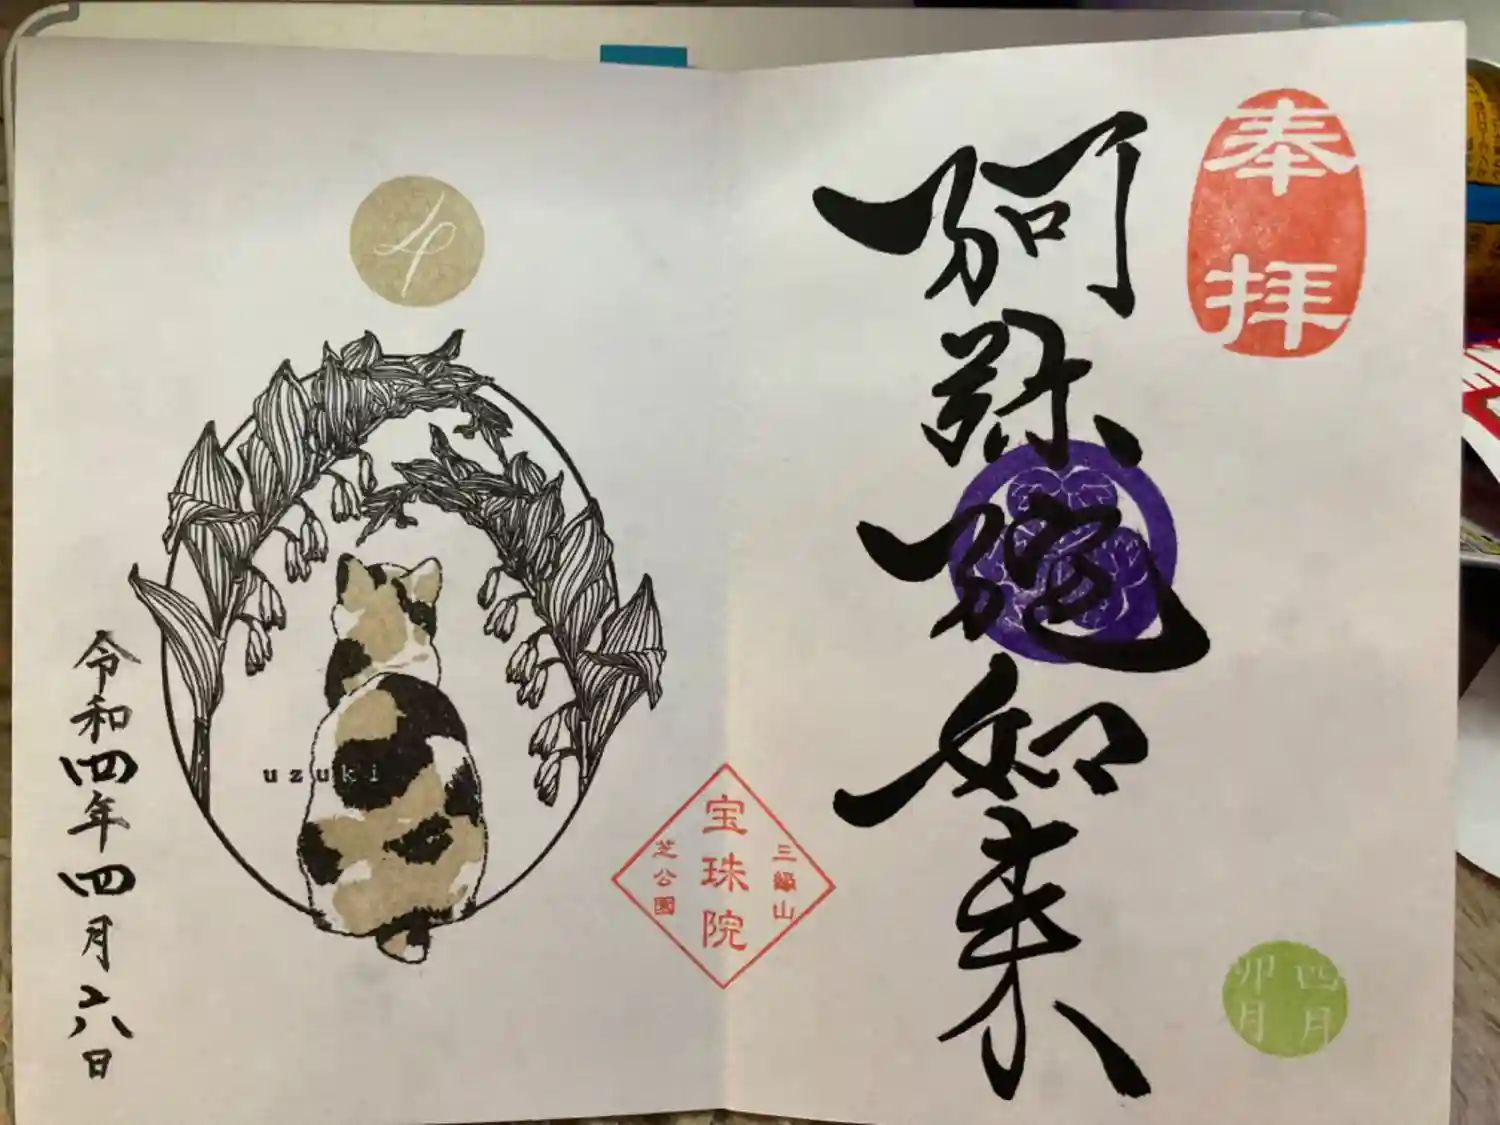 奉拝
阿弥陀如来
四月
卯月
三縁山
宝珠院
芝公園
4
uzuki
令和四年四月六日